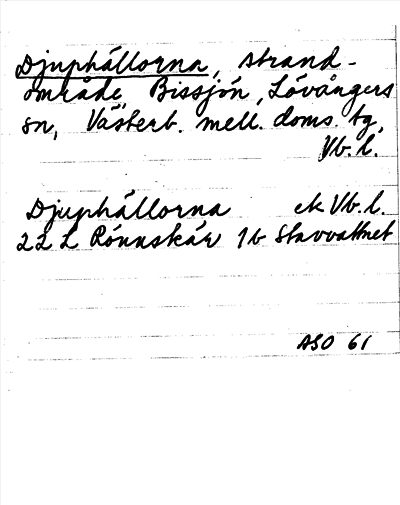 Djuphällorna, strand-
område Bissjön, Lövångers
sn, Västerb. mell. doms. tg,
Vb. l.
Djuphällorna ek Vb. l.
22 L Rönnskär 1b Stavvattnet
ASO 61